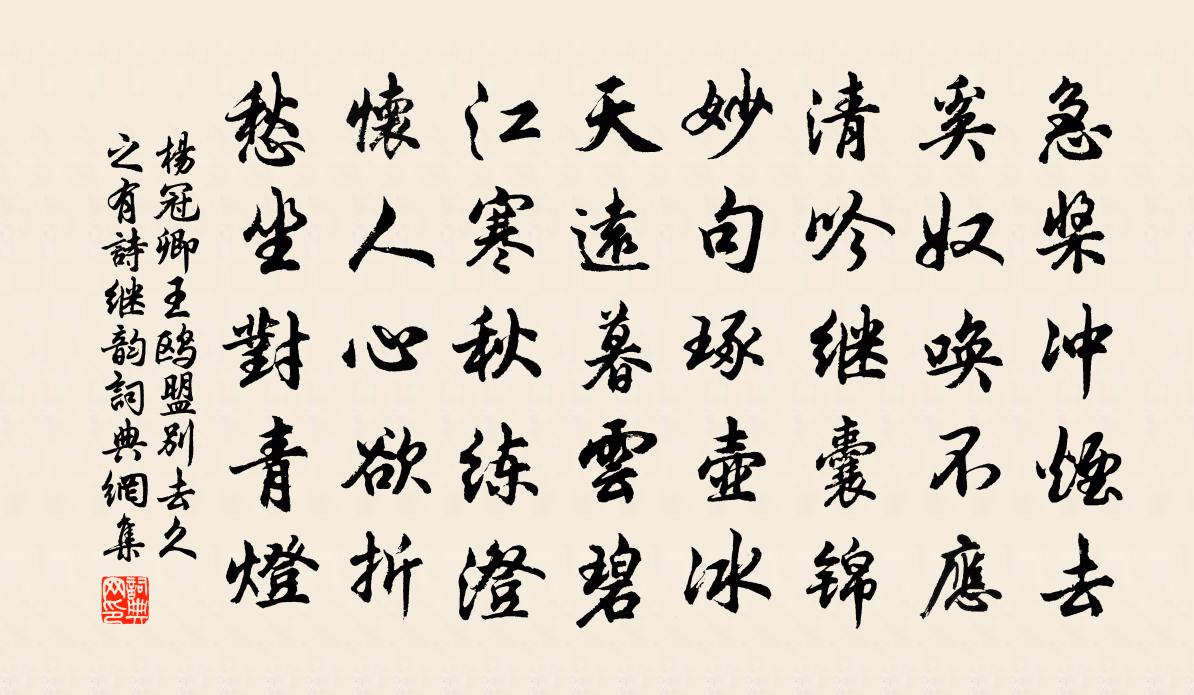 急槳沖煙去
奚奴喚不應
清吟继囊锦
妙句琢壺冰
天遠暮雲碧
江寒秋练澄
懷人心欲折
愁坐對青燈
楊冠卿王鸥盟别去久
之有詩继韵詞典網集
詞典网印